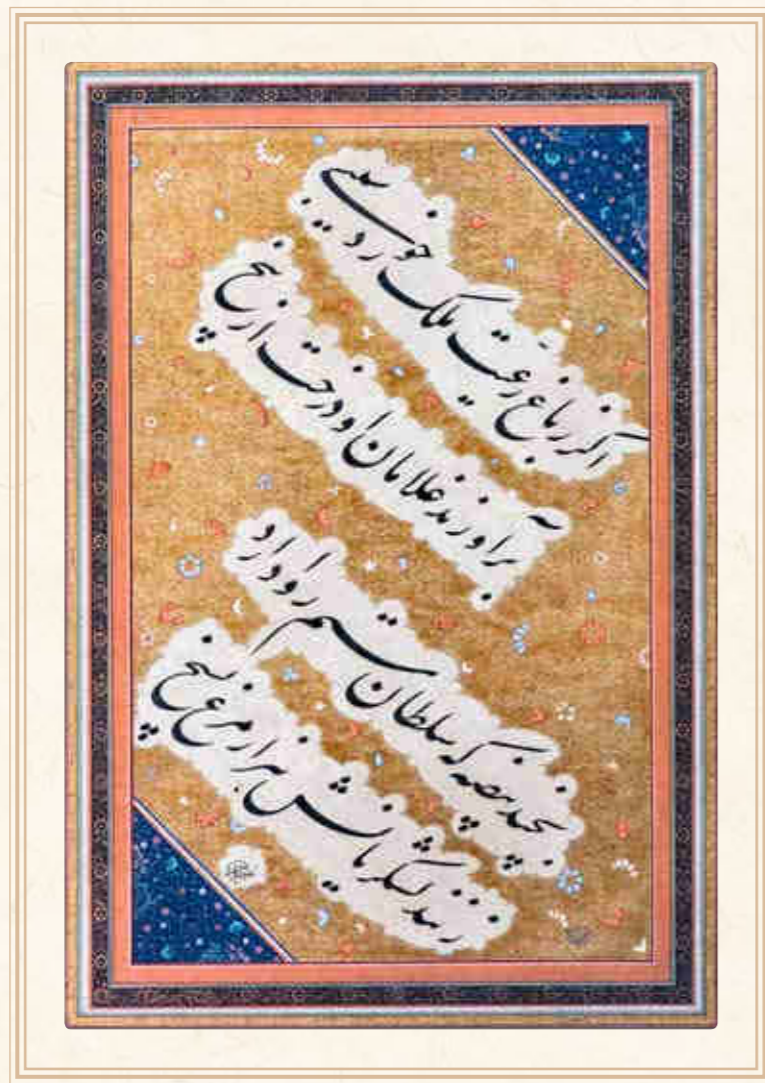 اگر ز باغ رعیت ملک خورد سیبی
برآورند غلامان او درخت از بیخ
بچند بیضه که سلطان ستم روا دارد
زنند لشکریانش هزار مرغ بسیخ